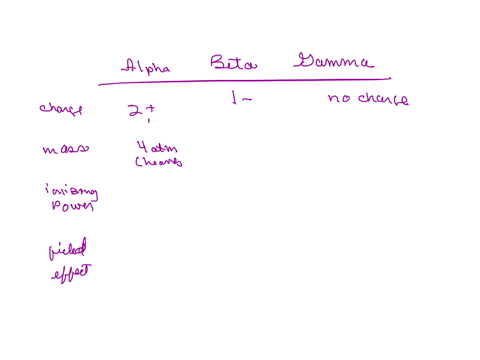 Alpha Beta Gamma
charge 2+ 1- no charge
mass 4 atm
ionizing
power
effect